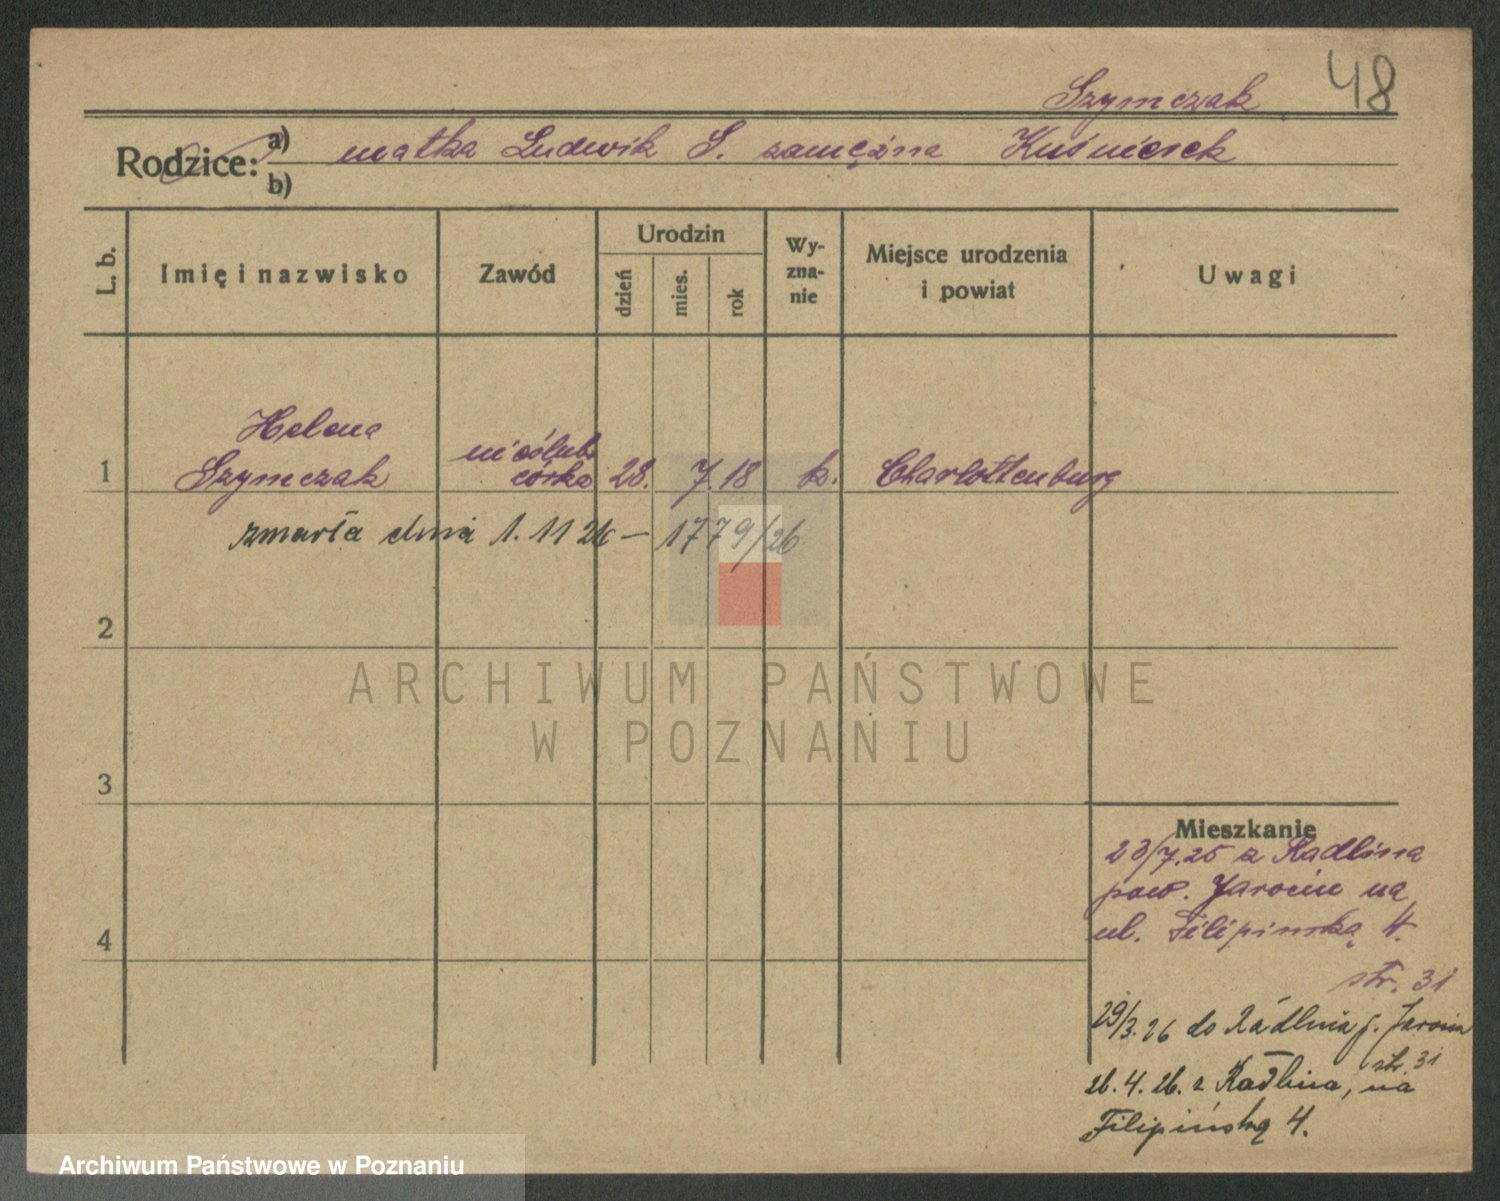 48
Szymczak
Rodzice: a) matka Ludwik S. zamężna Kuśnierek
b)
L. b.
Imię i nazwisko
Zawód
Urodzin
dzień
mies.
rok
Wy-
zna-
nie
Miejsce urodzenia
i powiat
Uwagi
Helena
1 Szymczak nieślub. córka 28. 7. 18 k. Charlottenburg
zmarła dnia 1. 11 26 – 1779/26
2
3
4
ARCHIWUM PAŃSTWOWE
W POZNANIU
Mieszkanie
23/7.25 z Radlina
pow. Jarocin na
ul. Filipińską 4.
str. 31
29/3.26 do Radlina p. Jarocin
str. 31
26.4.26. z Radlina, na
Filipińską 4.
Archiwum Państwowe w Poznaniu